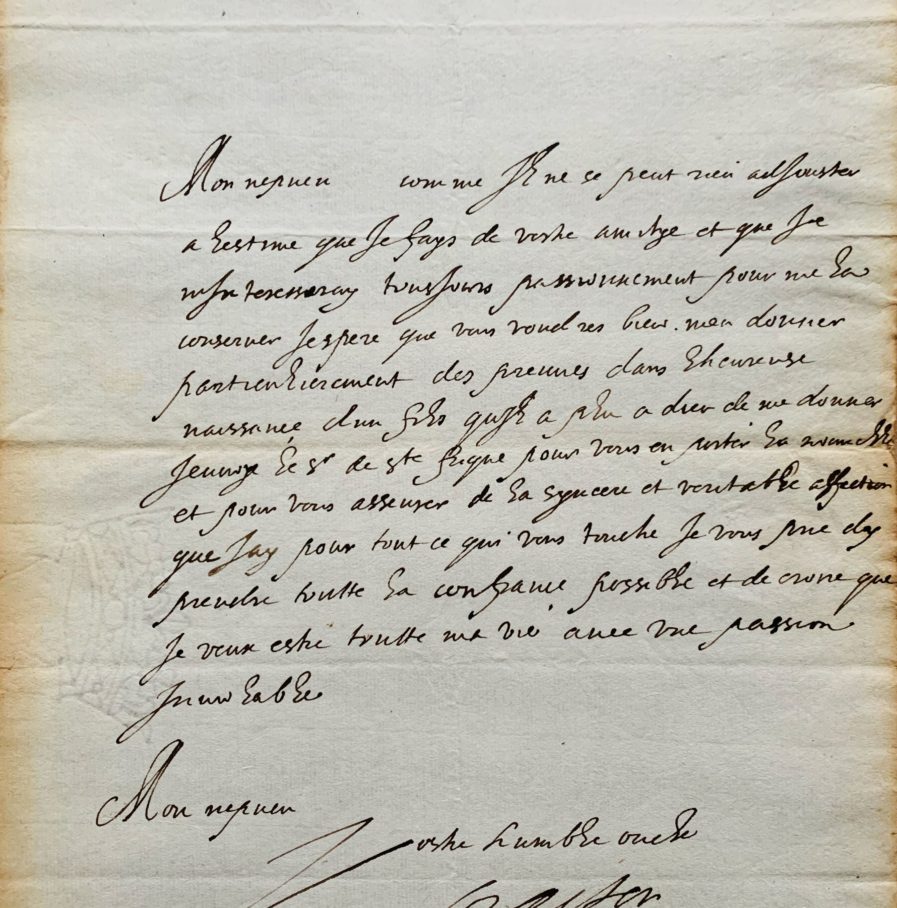 Mon nepueu comme Il ne se peut rien adjouster
a lestime que Je fays de vostre amitye et que Je
mInteresseray tousjours passionnement pour me la
conserver Jespere que vous voudres bien men donner
particulierement des preuves dans lheureuse
naissance dun fils quIl a plu a dieu de me donner
Jenvoye le Sr de Ste pour vous en porter la nouvelle
et pour vous asseurer de la syncere et veritable affection
que Jay pour tout ce qui vous touche Je vous prie dy
prendre toutte la confiance possible et de croire que
Je veux estre toutte ma vie avec une passion
Inviolable
Mon nepueu
Vostre humble oncle
Gaston